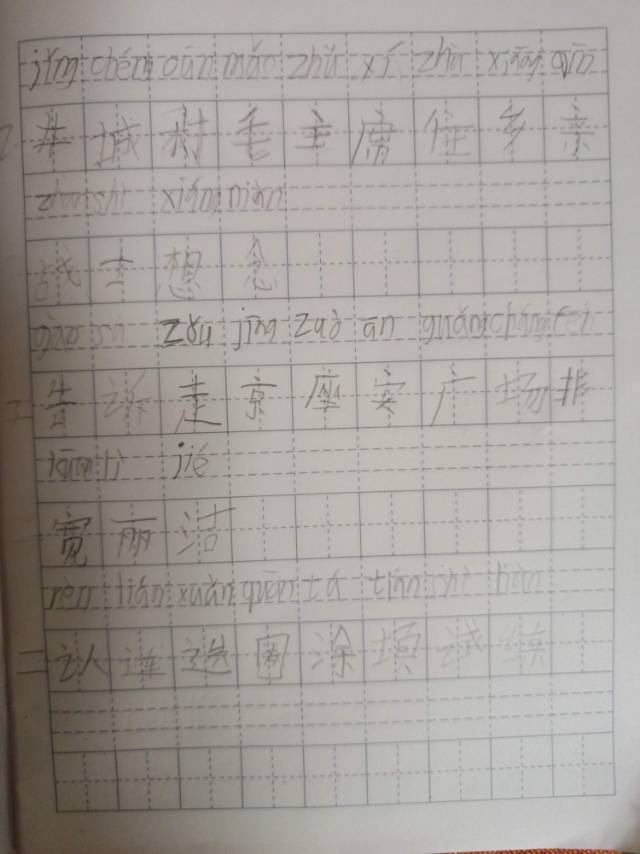 jǐng chéng cūn máo zhǔ xí zhù xiāng qīn
井 城 村 毛 主 席 住 乡 亲
zhàn shì xiǎng niàn
战 士 想 念
gào sù zǒu jīng zuò ān guǎng chǎng fēi
告 诉 走 京 座 安 广 场 非
lì jié
宽 丽 洁
rèn lián xuǎn quān tú tián shì liàn
二 认 连 选 圈 涂 填 试 练